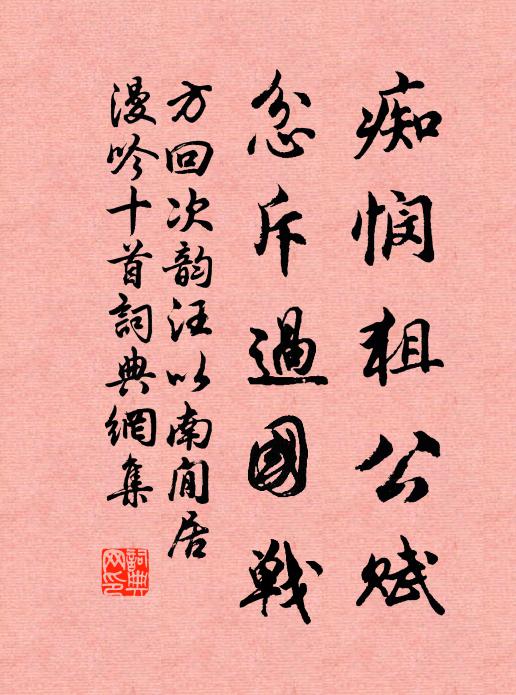 痴悯狙公赋
忿斥過國戦
方回次韵汪以南閒居
漫吟十首詞典網集
詞典网印